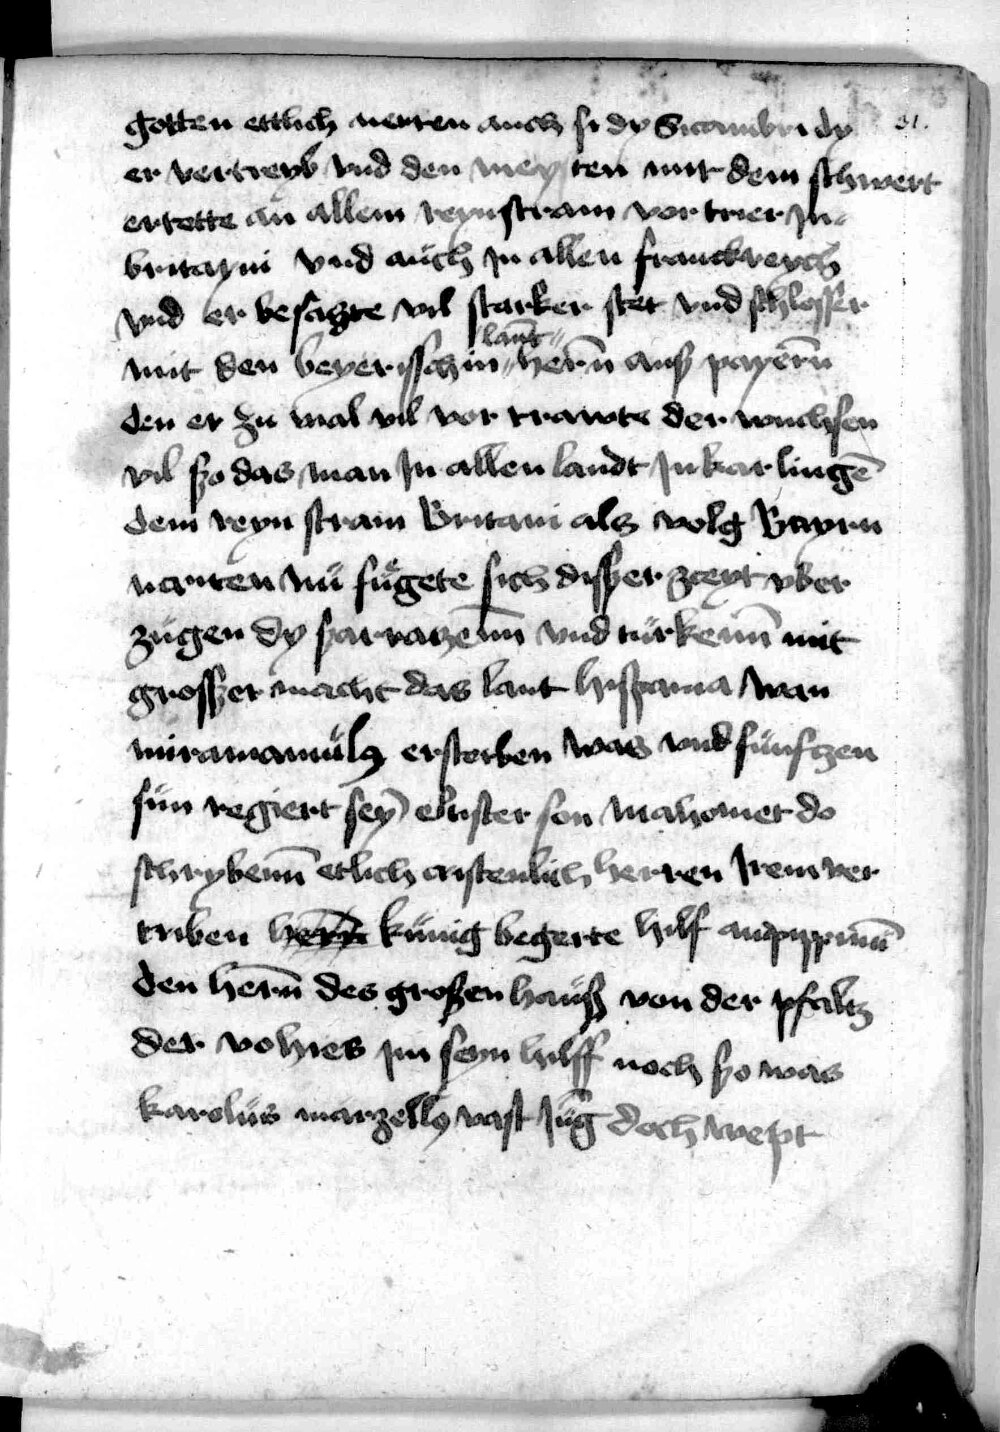 gotten ettlich nerren auch si dy Sicambri dy 31.
er vertreyb vnd den meysten mit dem schwert
ertotte an allem reynstram vor trier jn
britayni vnd auch jn allen franckreych
vnd er besaczte vil starker stet vnd schlosser
lant
mit den beyerisschin hern̄ auß payern̄
den er zu mal vil vor trawte der wuchsen
vil so das man jn allen landt jn kar lingē
dem reyn stram Britani als volg Bayrn
nanten nu fugete sich disser zceyt vber
zugen dy sarratzenn̄ vnd turkenn̄ mit
grosser macht das lant hispania wan
miramamulꝰ erstorben was vnd funfczen
sun regiert sey eltister son Mahomet do
schrybenn̄ etlich cristenlich herren jrem ver
triben hern̄ kunig begerte hilf an pippinū
den hern̄ des großen hauß von der pfaltz
der vohies jm seyn hilff noch so was
karolus marzellꝰ vast jūg doch wept